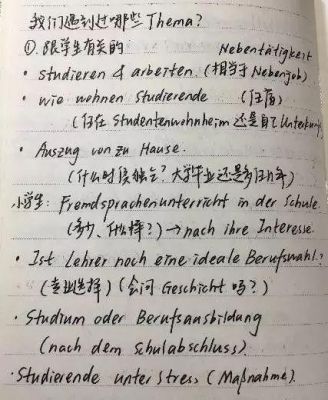 我们遇到过哪些 Thema?
①. 跟学生有关的 Nebentätigkeit
· studieren & arbeiten (相当于 Nebenjob)
· wie wohnen Studierende (住宿)
(住在 Studentenwohnheim 还是自己 Unterkunft)
· Auszug von zu Hause.
(什么时候独立? 大学毕业还是多住几年)
小学生: Fremdsprachenunterricht in der Schule
(多少、什么样?) → nach ihre Interesse
· Ist Lehrer noch eine ideale Berufswahl?
(专业选择) (会问 Geschicht 吗?)
· Studium oder Berufsausbildung
(nach dem Schulabschluss)
· Studierende unter Stress (Maßnahme)